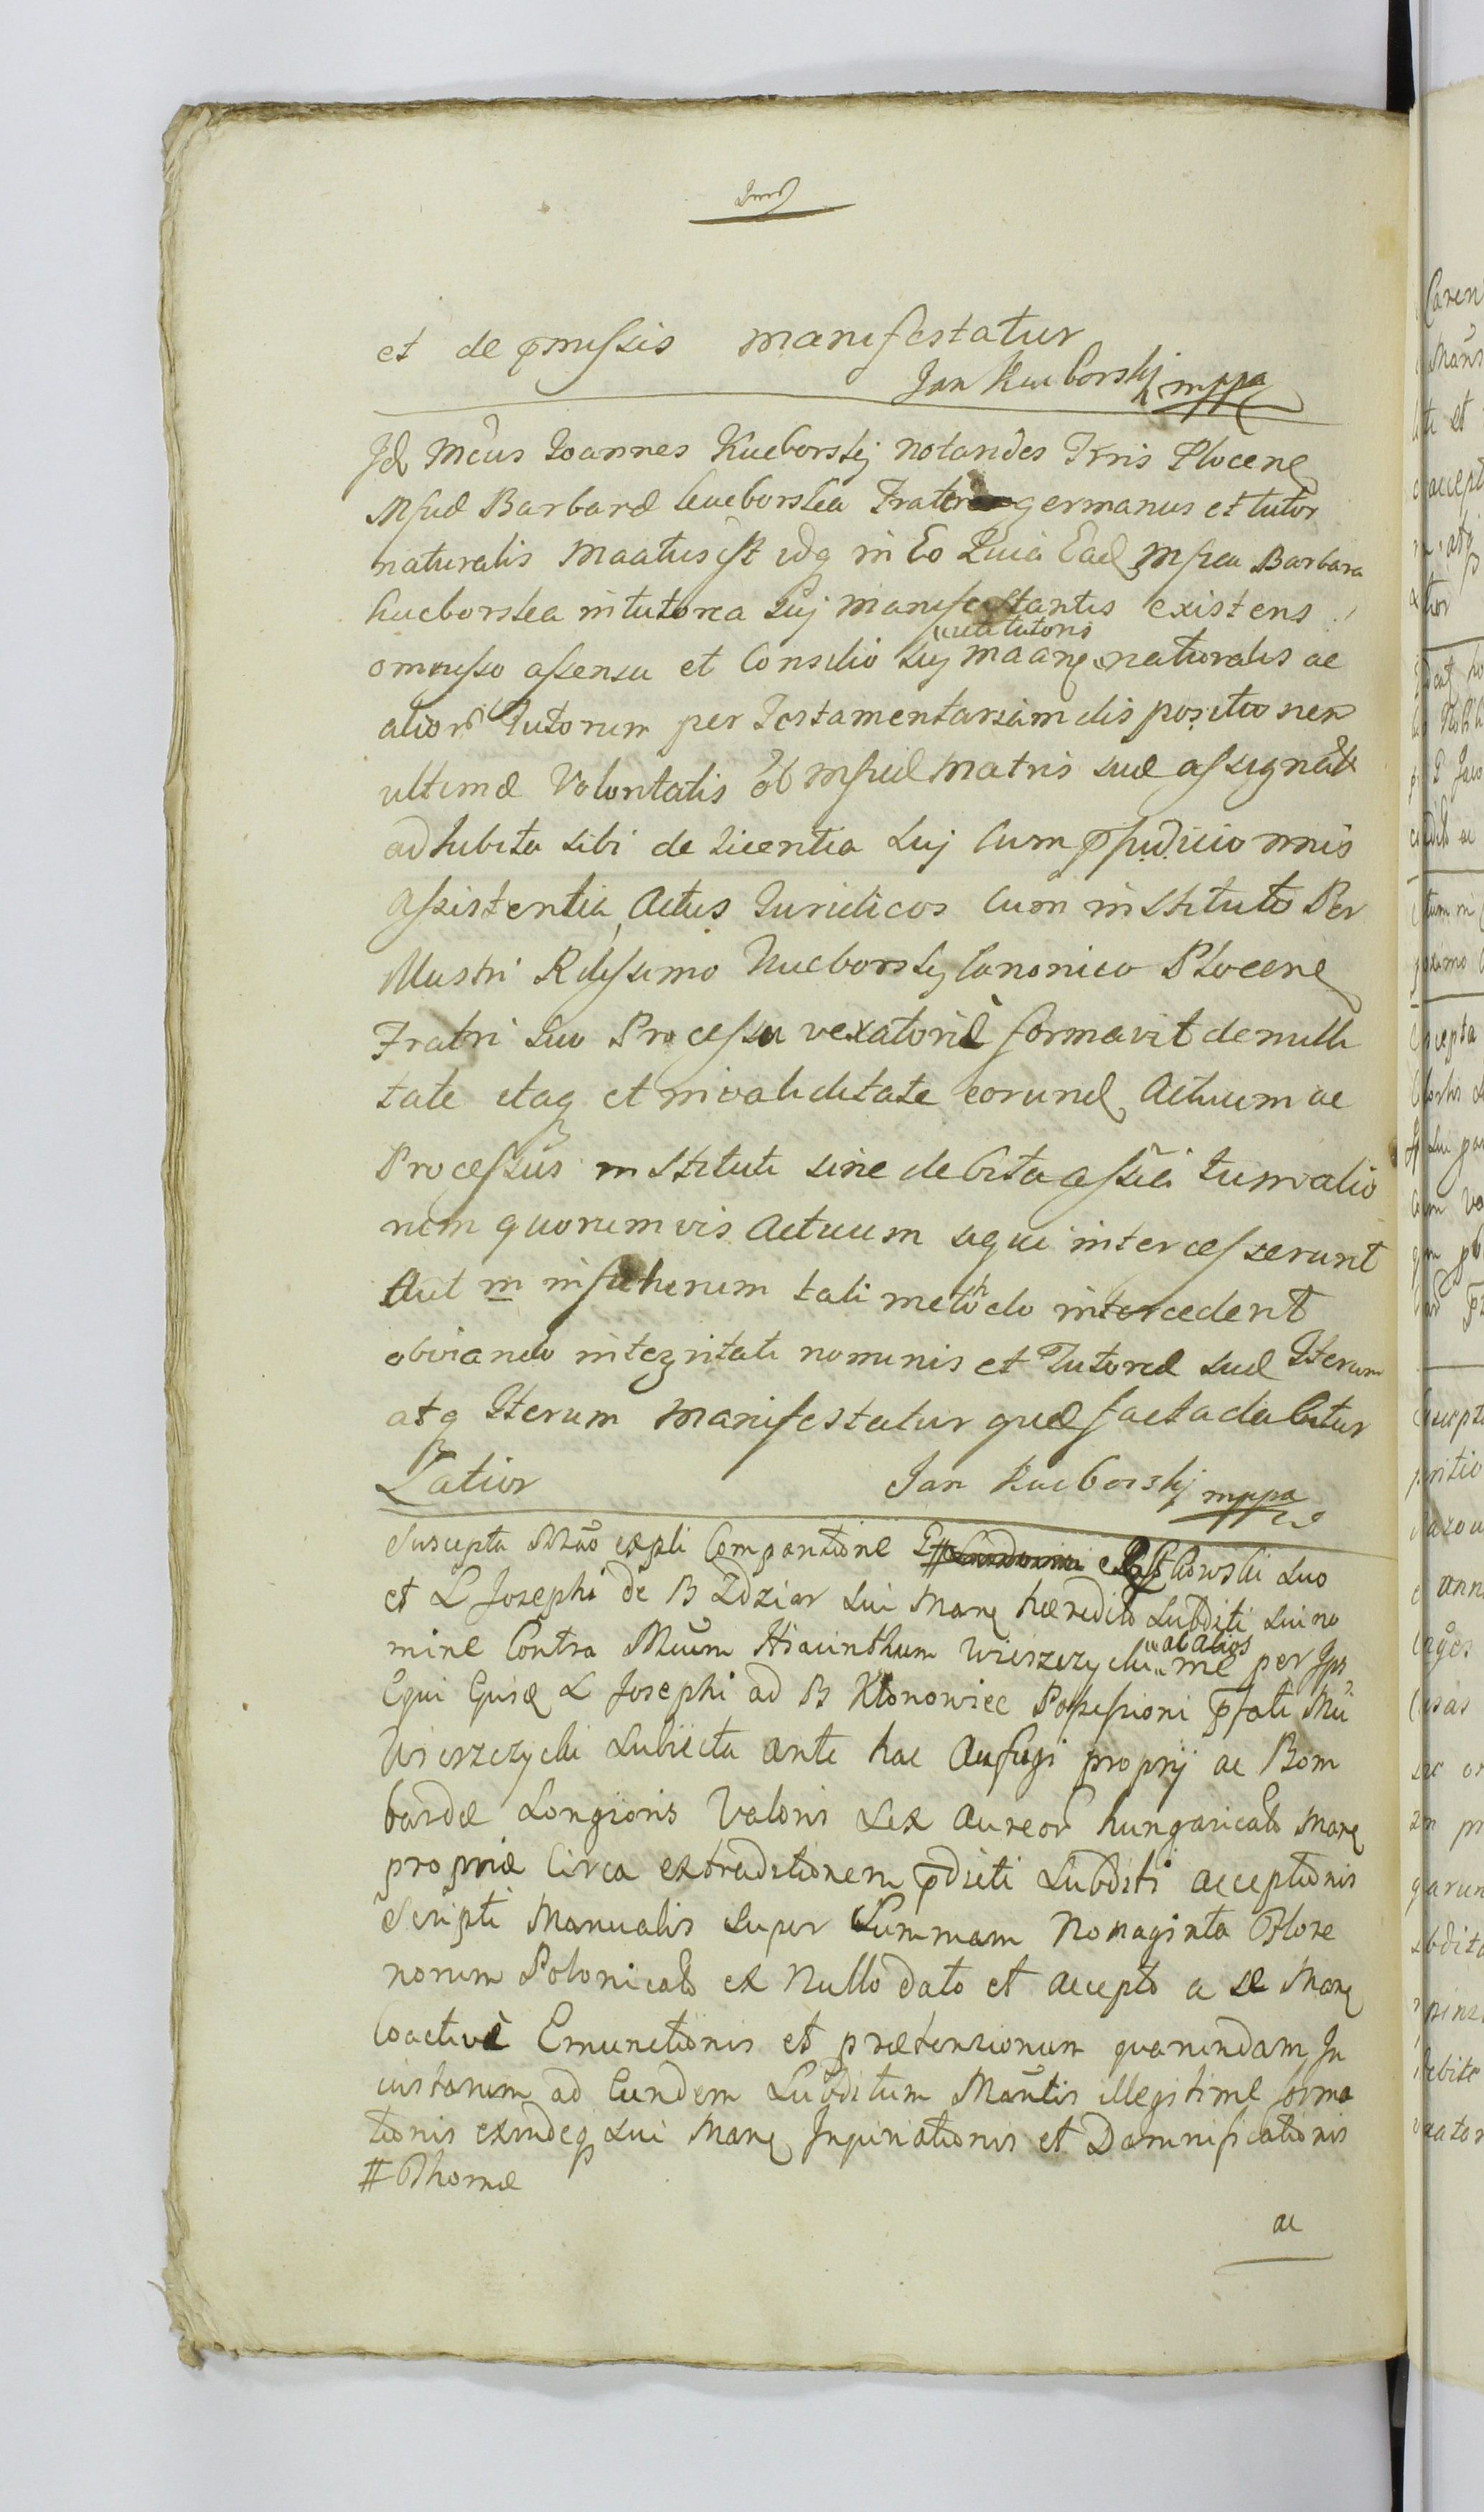 et de pmissis manifestatur
Jan Kucborskj mppa
Jd Mcus Joannes Kucborskj notarides Trris Plocens
Msciae Barbarae Kucborska Frater germanus et tutor
naturalis maatus est idq in Eo Quia Ead Msca Barbara
Kucborska in tutorea suj manifestantis existens
omisso assensu et Consilio suj maans uti tutoris naturalis ac
alior Tutorum per Testamentariam dispositionem
ultimae Voluntatis ol msciae Matris suae assignat
adhibita sibi de licentia suj Cum pjudicio mnis
assistentia Actus Juridicos cum instituto Per
Illustri Rdissimo Kucborskj Canonico Plocens
Fratri suo Processu vexatorie formavit de nulli
tate itaq et invaliditate eorund Actuum ac
Processus instituti sine debita assia tum alio
rum quorumvis Actuum siqui intercesserunt
Aut in infuturum tali methodo intercedent
obviando integritati nominis et Tutoreae suae Iterum
atq Iterum manifestatur quae facta dabitur
Latior Jan Kucborskj mppa
Suscepta Mtao expli Comparitione # Rostkowski suo
et L Josephi de B Zdziar sui Mans haeredits subditi sui no
mine Contra Mcum Hiacinthum Wierzczycki ab alios me per Jps
Equi Ejusd L Josephi ad B Klonowiec Possessioni pfati Mci
Wierzczycki subiecta ante hac Aufugi proprij ac Bom
bardae Longioris Valoris sex aureor hungaricals Mans
propriae Circa extraditionem pdicti subditi acceptionis
Scripti Manualis super Summam Nonaginta Flore
norum Polonicals ex Nullo dato et accepto a se Mans
Coactivae Emunctionis et praetensionum quarundam In
iustarum ad Eundem Subditum Mantis illegitime forma
tionis exindeq sui Mans Injuriationis et Damnificationis
# Thomae
ac